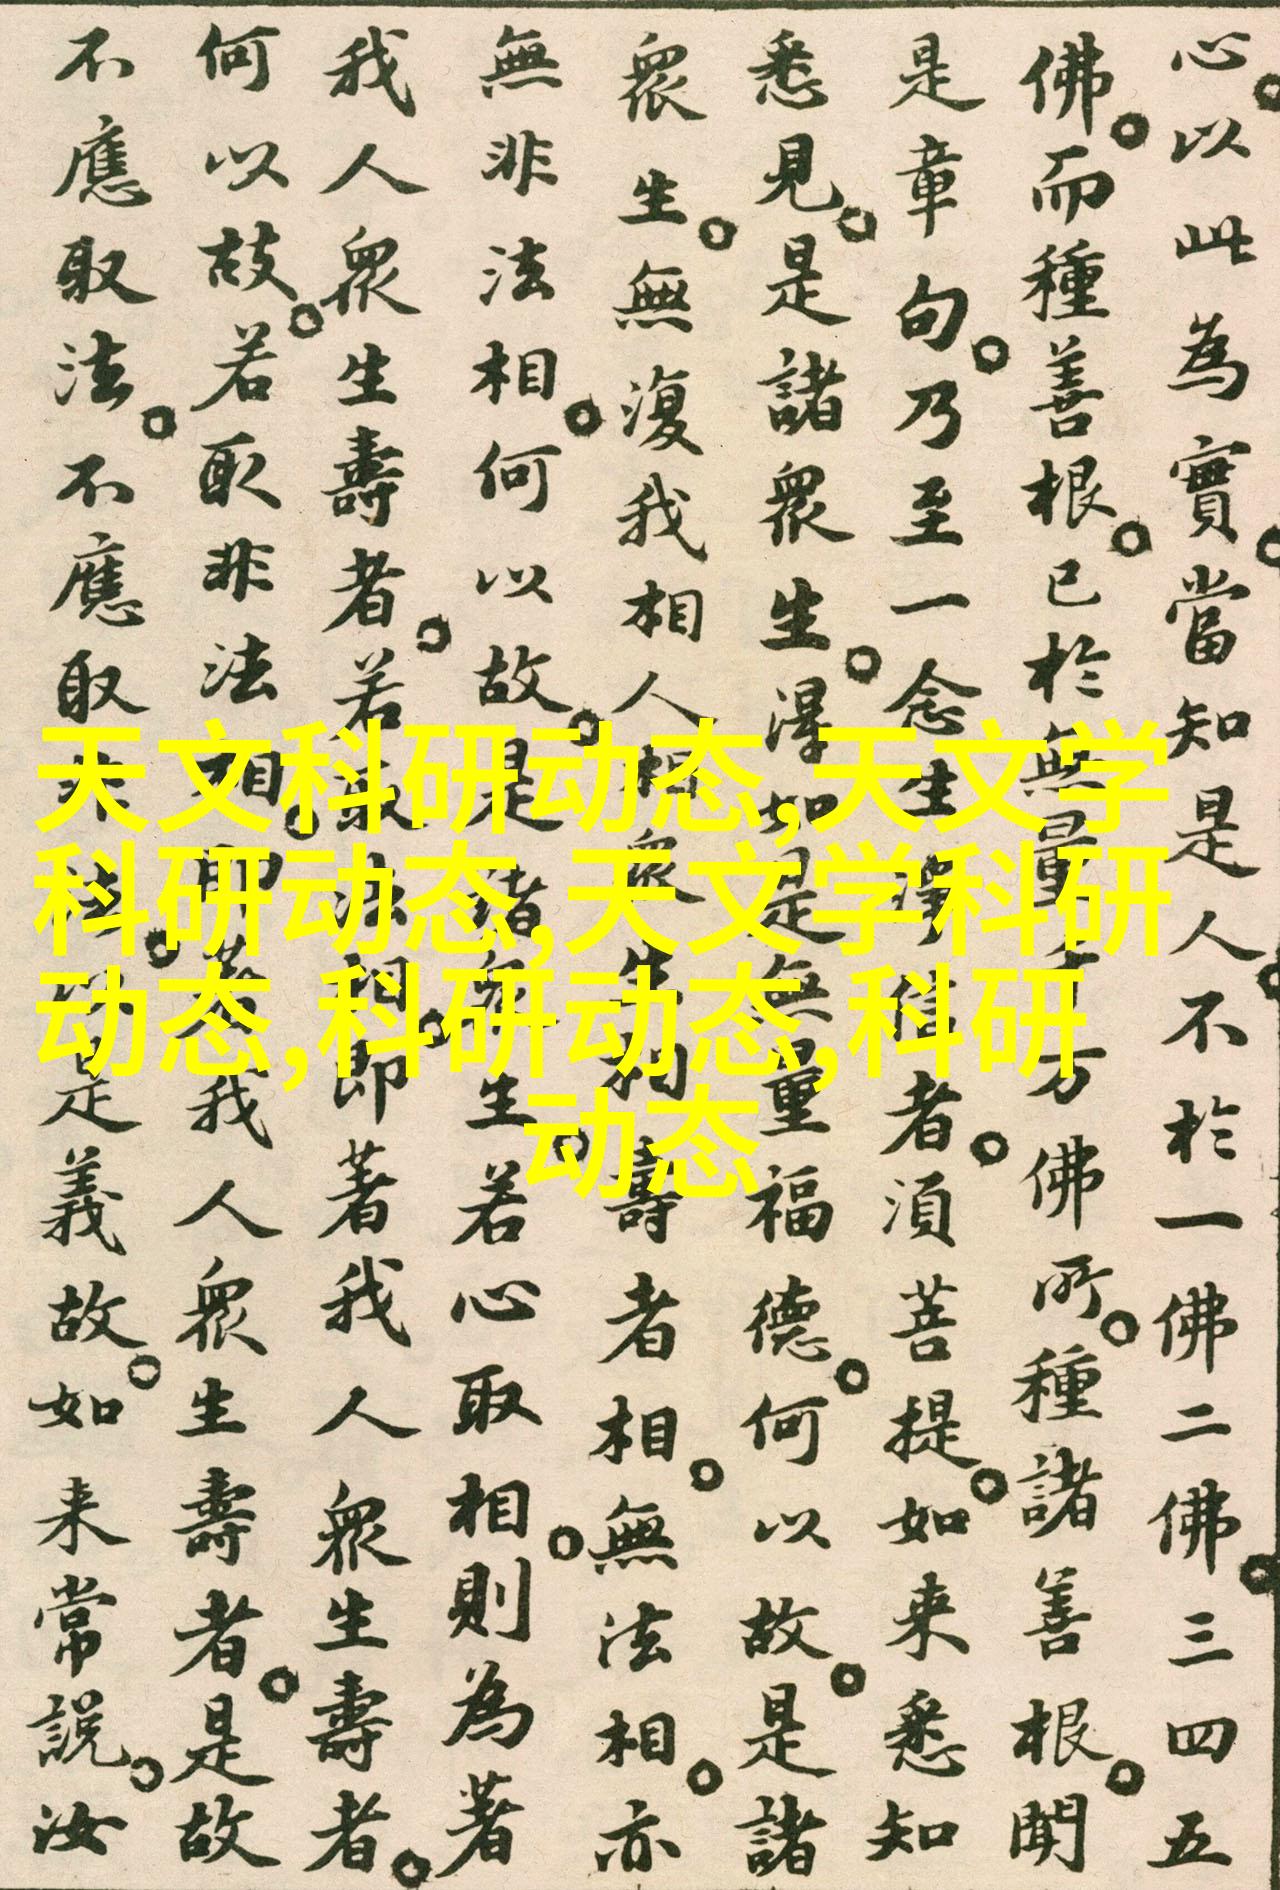 心以此為實當知是人不於一佛二佛三四五
佛而種善根已於無量千万佛所種諸善根聞
是章句乃至一念生淨信者須菩提如来悉知
悉見是諸衆生得如是無量福德何以故是諸
衆生無復我相人相衆生相壽者相無法相亦
無非法相何以故是諸衆生若心取相則為著
我人衆生壽者若取法相即著我人衆生壽者
何以故若取非法相即著我人衆生壽者是故
不應取法不應取非法以是義故如来常説汝
天文科研动态,天文学
科研动态,天文学科研
动态,科研动态,科研
动态